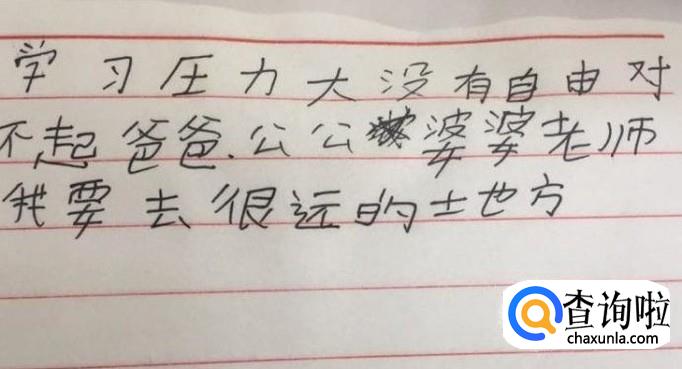 学习压力大没有自由对
不起爸爸.公公婆婆老师
我要去很远的地方
查询啦
chaxunla.com